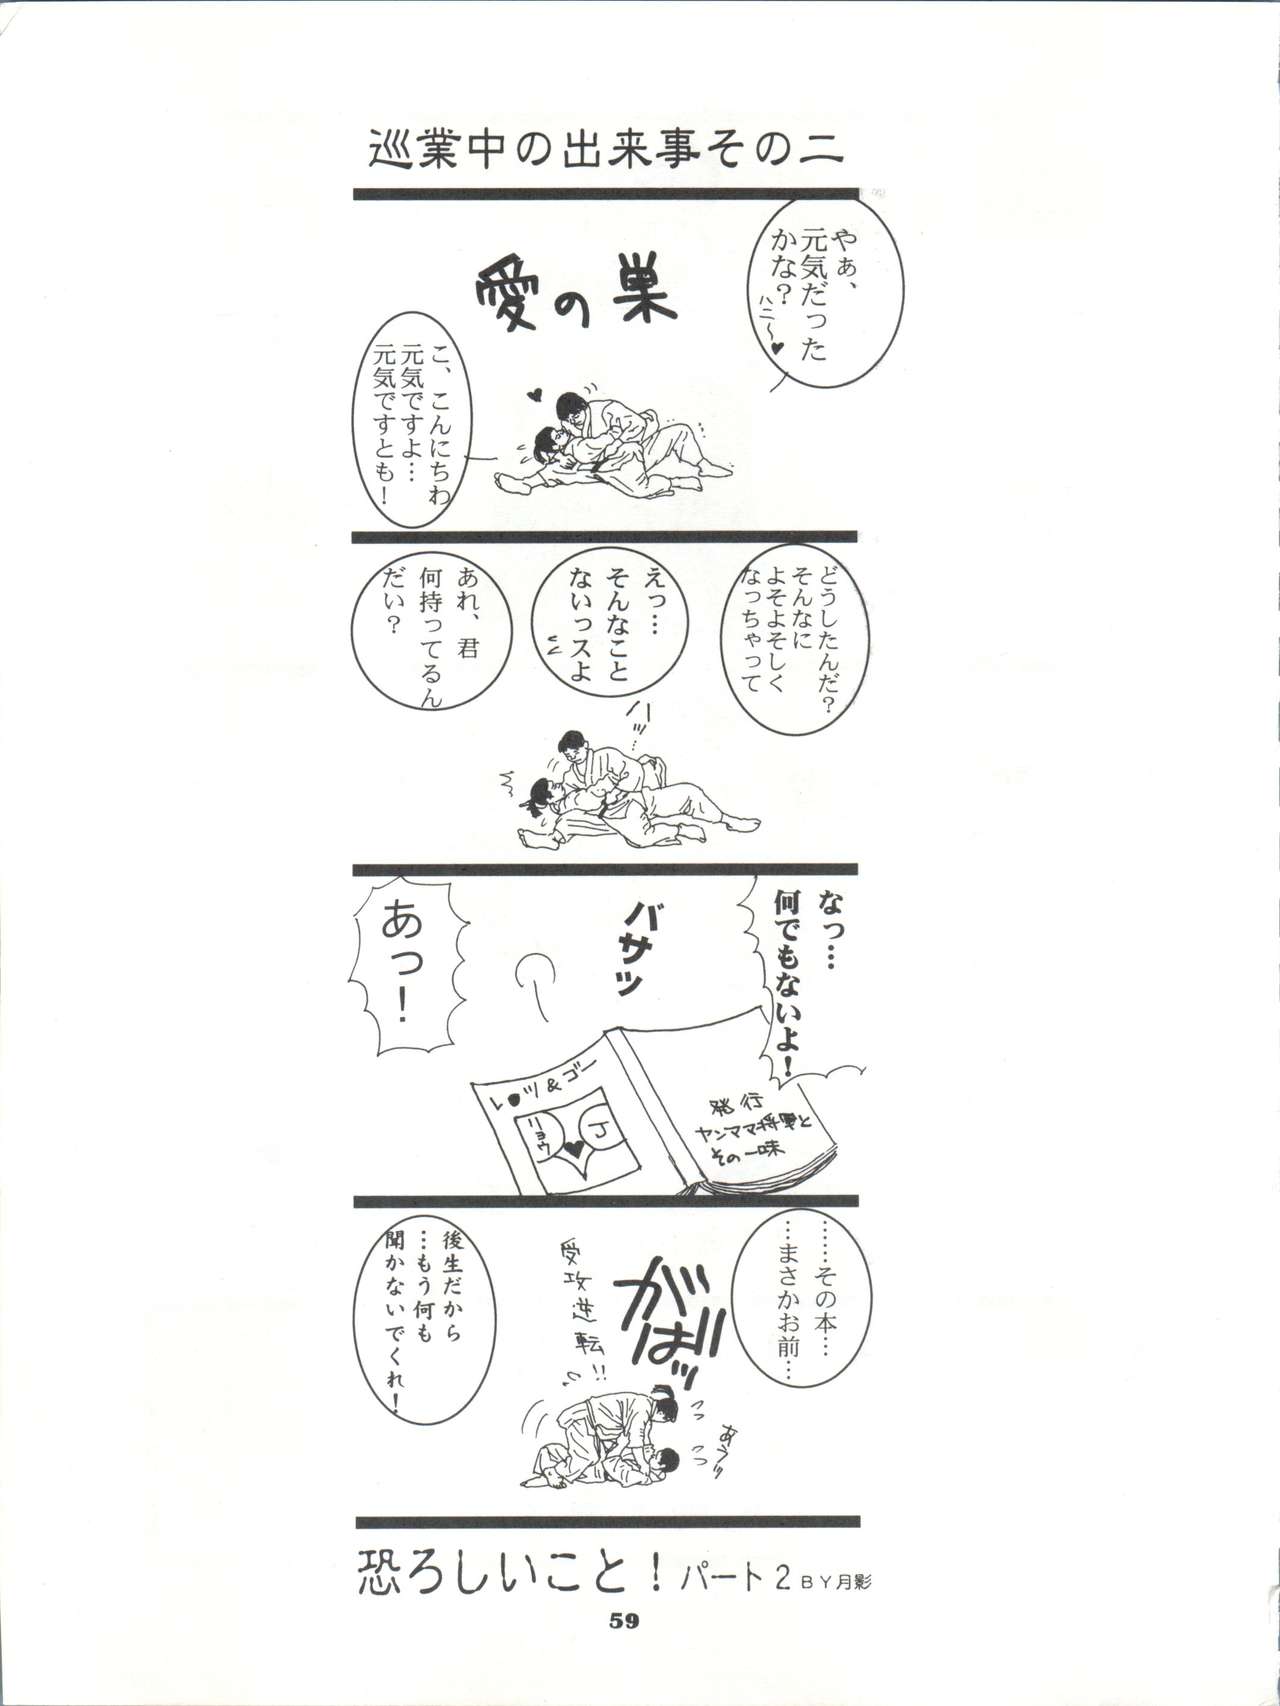 巡業中の出来事その二
やぁ、
元気だった
かな?
ハニ〜♥
愛の巣
こ、こんにちわ
元気ですよ…
元気ですとも!
どうしたんだ?
そんなに
よそよそしく
なっちゃって
えっ…
そんなこと
ないっスよ
ハッ…
あれ、君
何持ってるん
だい?
なっ…
何でもないよ!
バサッ
あっ!
レ●ツ&ゴー
リョウ
J
発行
ヤンママ将軍と
その一味
………その本…
…まさかお前…
がばッ
受攻逆転!!
あうッ
後生だから
…もう何も
聞かないでくれ!
恐ろしいこと!パート2 BY月影
59